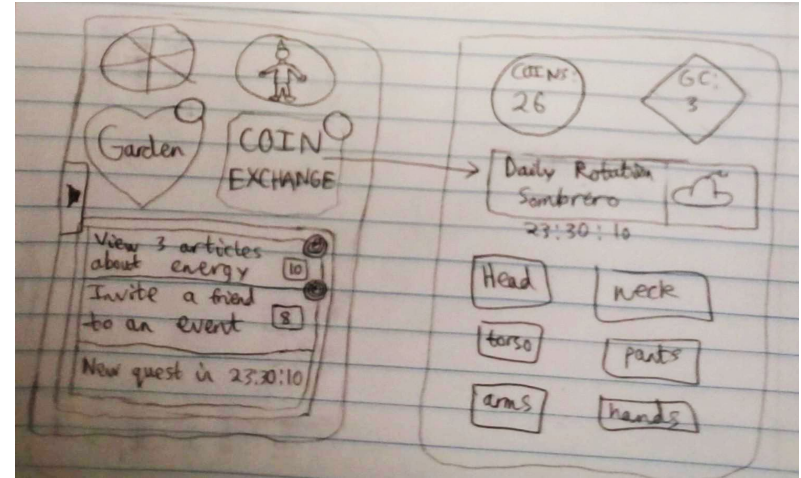 Garden
COIN
EXCHANGE
View 3 articles
about energy 10
Invite a friend
to an event 8
New quest in 23:30:10
COINS:
26
GC:
3
Daily Rotation
Sombrero
23:30:10
Head
neck
torso
pants
arms
hands